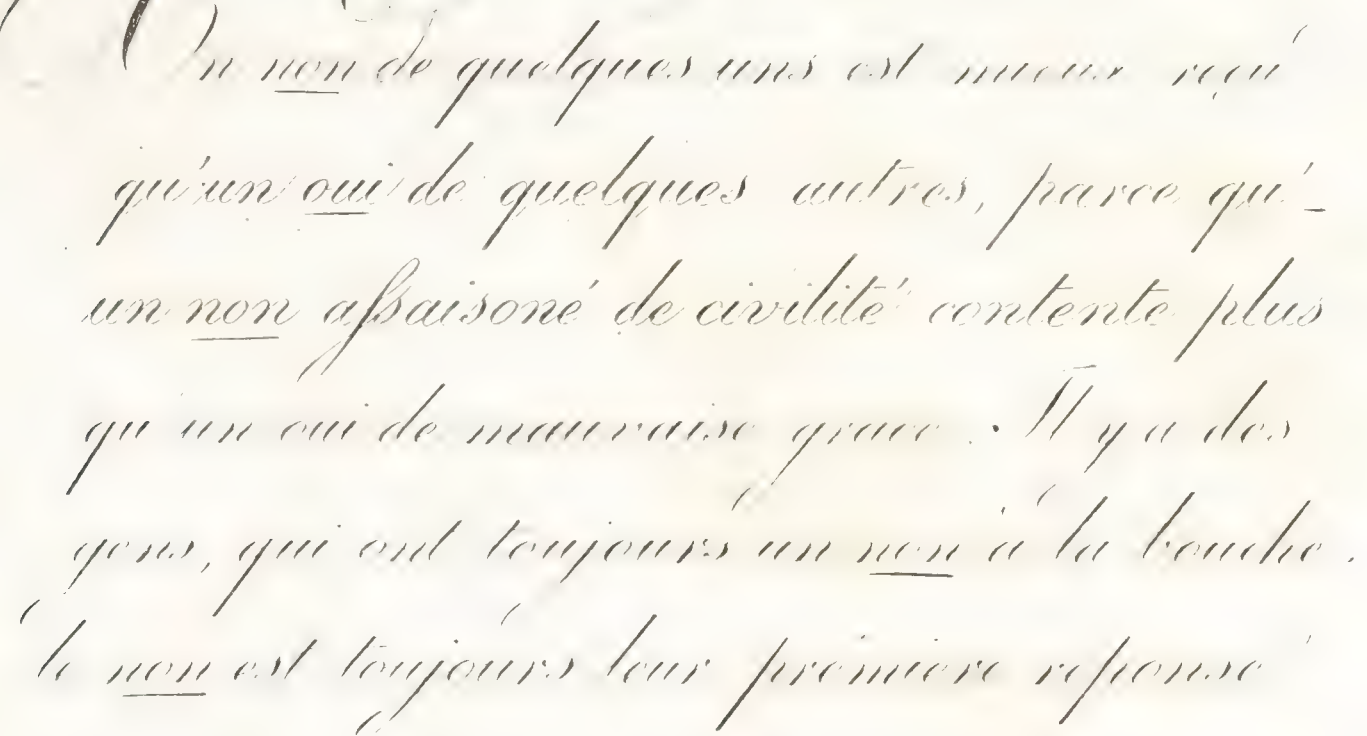 Un non de quelques uns est mieux reçu
qu'un oui de quelques autres, parce qu'-
un non assaisoné de civilité contente plus
qu'un oui de mauvaise grace. Il y a des
gens, qui ont toujours un non à la bouche.
le non est toujours leur premiere reponse